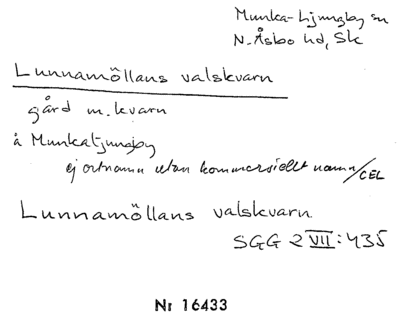 Munka-Ljungby sn
N. Åsbo hd, Sk
Lunnamöllans valskvarn
gård m. kvarn
å Munkaljungby
ej ortnamn utan kommersiellt namn/CEL
Lunnamöllans valskvarn
SGG 2 VII:435
Nr 16433